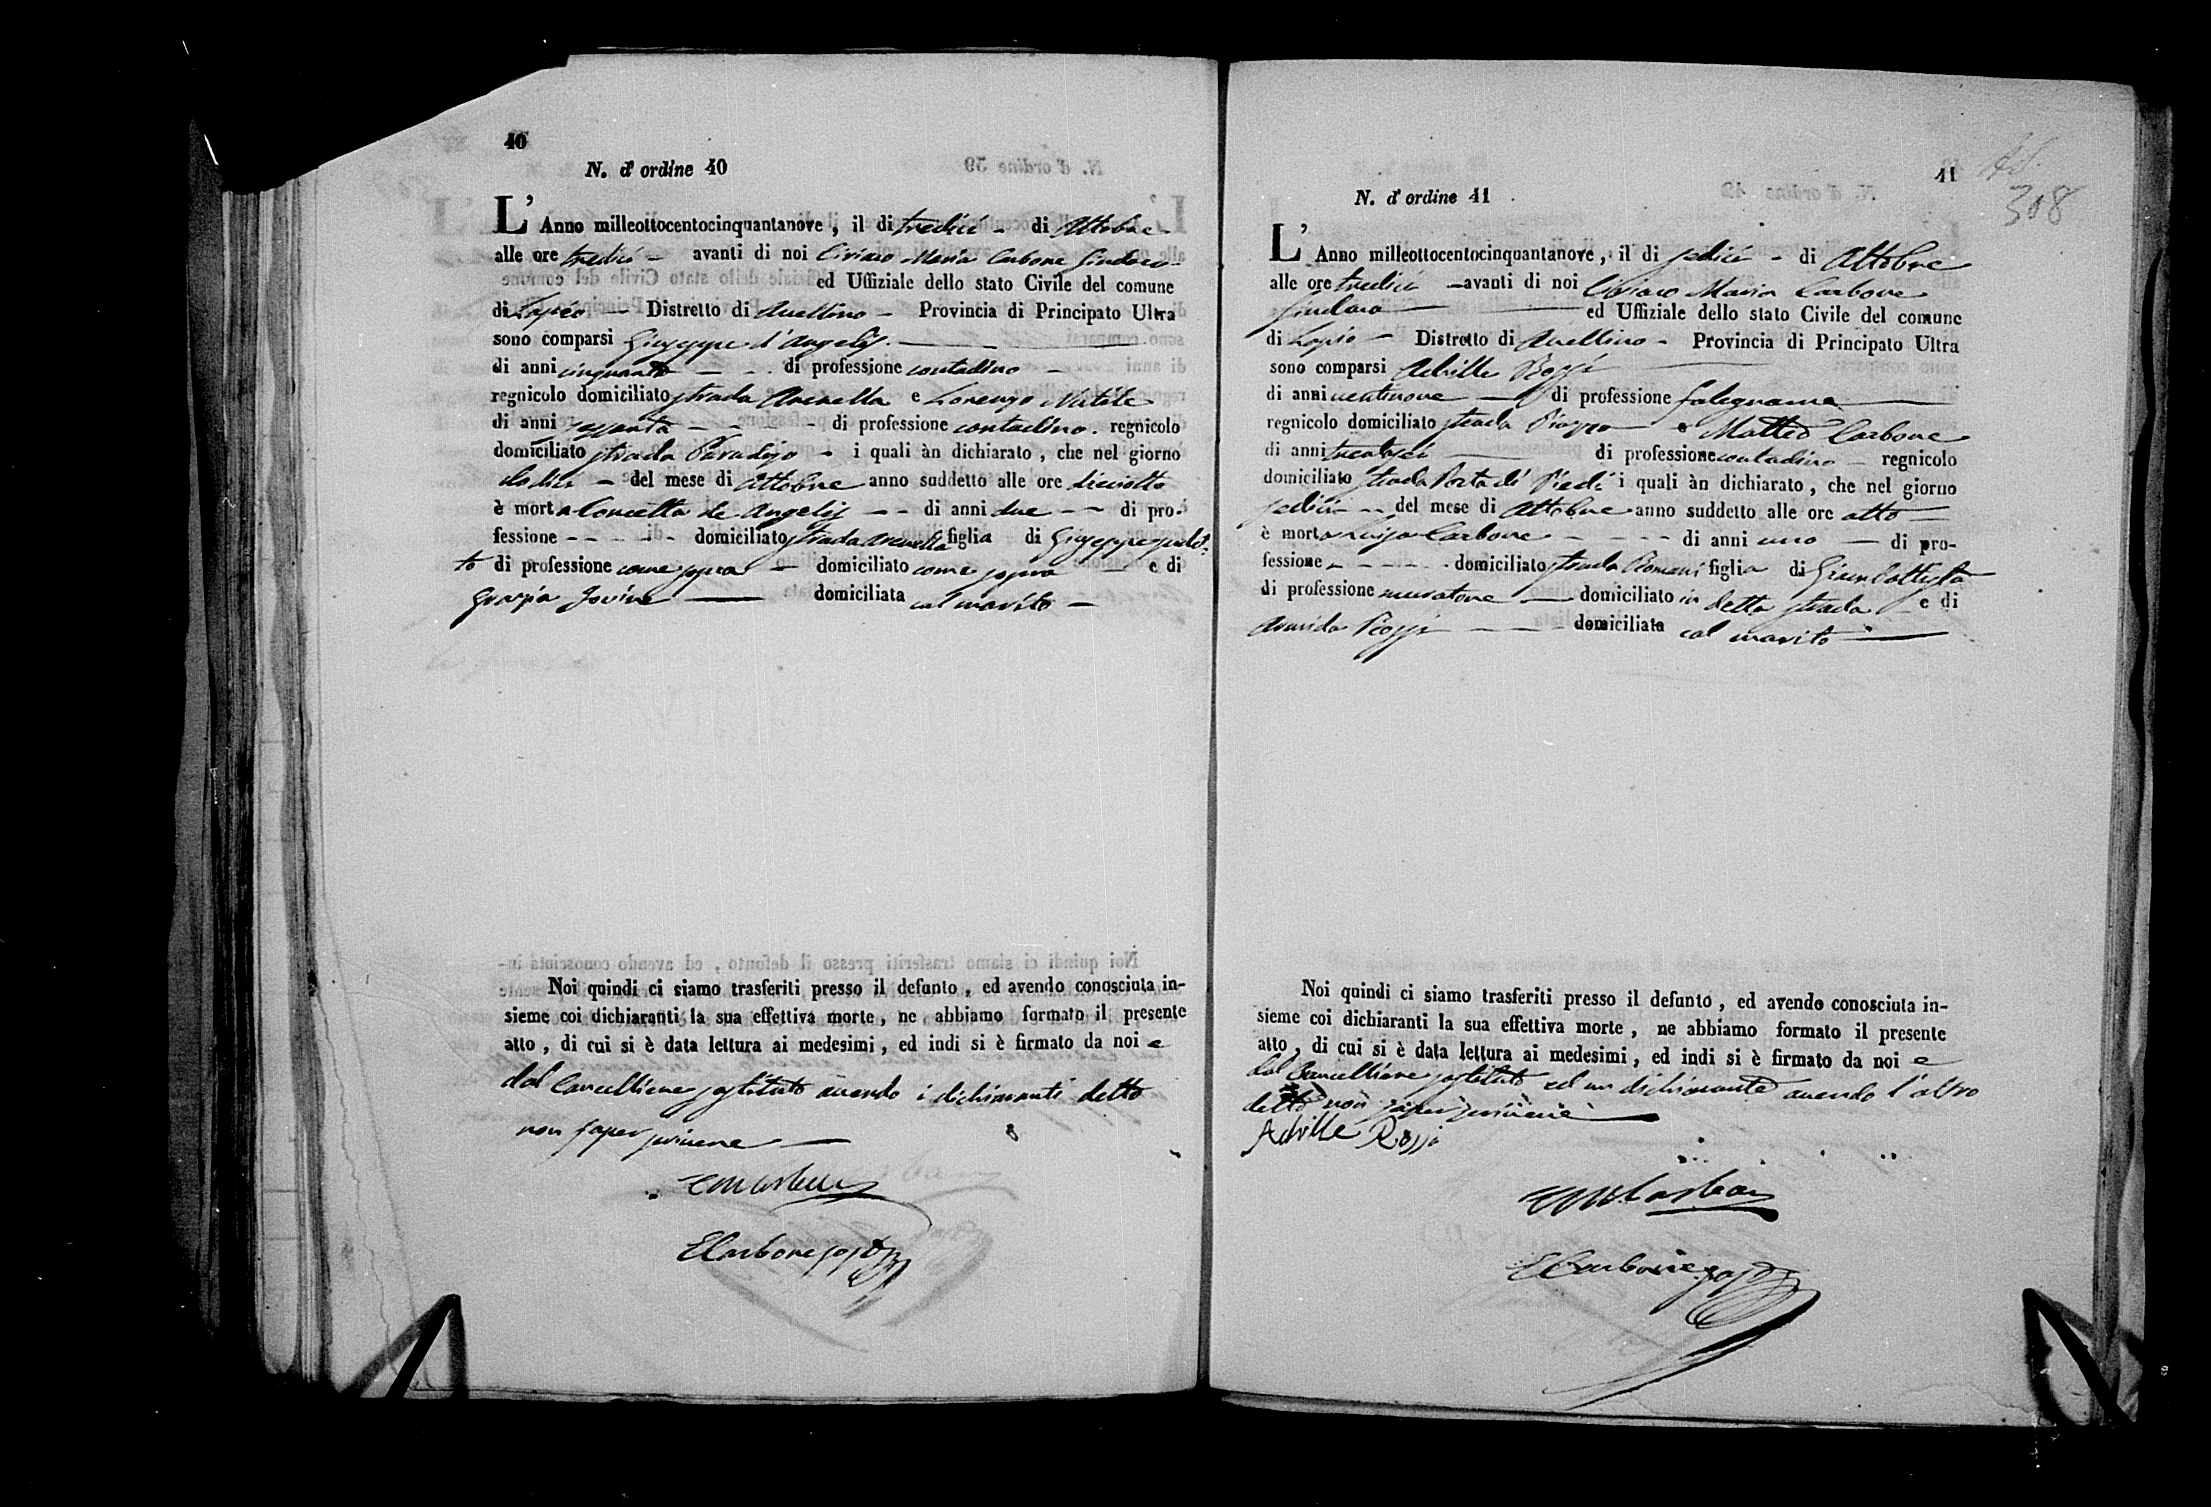 40
N. d' ordine 40
L' Anno milleottocentocinquantanove, il di tredici - di Ottobre -
alle ore tredici - avanti di noi Ciriaco Maria Carbone Sindaco -
ed Uffiziale dello stato Civile del comune
di Lapio - Distretto di Avellino - Provincia di Principato Ultra
sono comparsi Giuseppe d' Angelis
di anni cinquanta - - di professione contadino -
regnicolo domiciliato strada Arenella e Lorenzo Natale
di anni sessanta - - - di professione contadino. regnicolo
domiciliato strada Paradiso - i quali àn dichiarato, che nel giorno
dodici - del mese di Ottobre anno suddetto alle ore diciotto
è morta Concetta de Angelis - - di anni due - - di pro-
fessione - - - - domiciliato strada Arenella figlia di Giuseppe sudet-
to di professione come sopra - domiciliato come sopra - e di
Grazia Iovine - domiciliata col marito -
Noi quindi ci siamo trasferiti presso il defunto, ed avendo conosciuta in-
sieme coi dichiaranti la sua effettiva morte, ne abbiamo formato il presente
atto, di cui si è data lettura ai medesimi, ed indi si è firmato da noi e
dal Cancelliere sostituto avendo i dichiaranti detto
non saper scrivere -
ECarbone sost
41
308
N. d' ordine 41
L' Anno milleottocentocinquantanove, il di sedici - di Ottobre
alle ore tredici - avanti di noi Ciriaco Maria Carbone
Sindaco - ed Uffiziale dello stato Civile del comune
di Lapio - Distretto di Avellino - Provincia di Principato Ultra
sono comparsi Achille Rossi
di anni ventinove - di professione falegname
regnicolo domiciliato strada Piazza e Matteo Carbone
di anni trentasei - di professione contadino - regnicolo
domiciliato strada Porta di Piedi i quali àn dichiarato, che nel giorno
sedici - - del mese di Ottobre anno suddetto alle ore otto -
è morta Luisa Carbone - - - di anni uno - di pro-
fessione - - - - domiciliato strada Romani figlia di Giambattista
di professione muratore - domiciliato in detta strada - e di
Armida Rossi - - - domiciliata col marito -
Noi quindi ci siamo trasferiti presso il defunto, ed avendo conosciuta in-
sieme coi dichiaranti la sua effettiva morte, ne abbiamo formato il presente
atto, di cui si è data lettura ai medesimi, ed indi si è firmato da noi e
dal Cancelliere sostituto ed un dichiarante avendo l'altro
detto non saper scrivere -
Achille Rossi
ECarbone sost